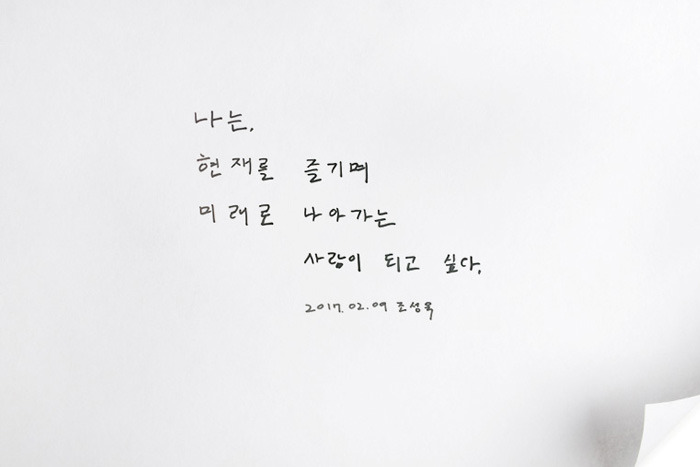 나는,
현재를 즐기며
미래로 나아가는
사람이 되고 싶다.
2017.02.09 조성욱